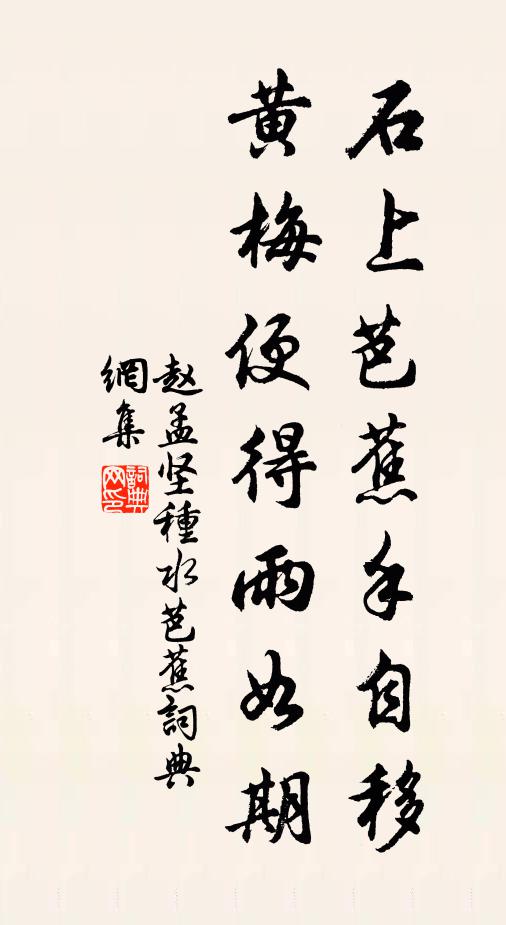 石上芭蕉手自移
黄梅便得雨如期
赵孟坚種水芭蕉詞典
網集
詞典网印